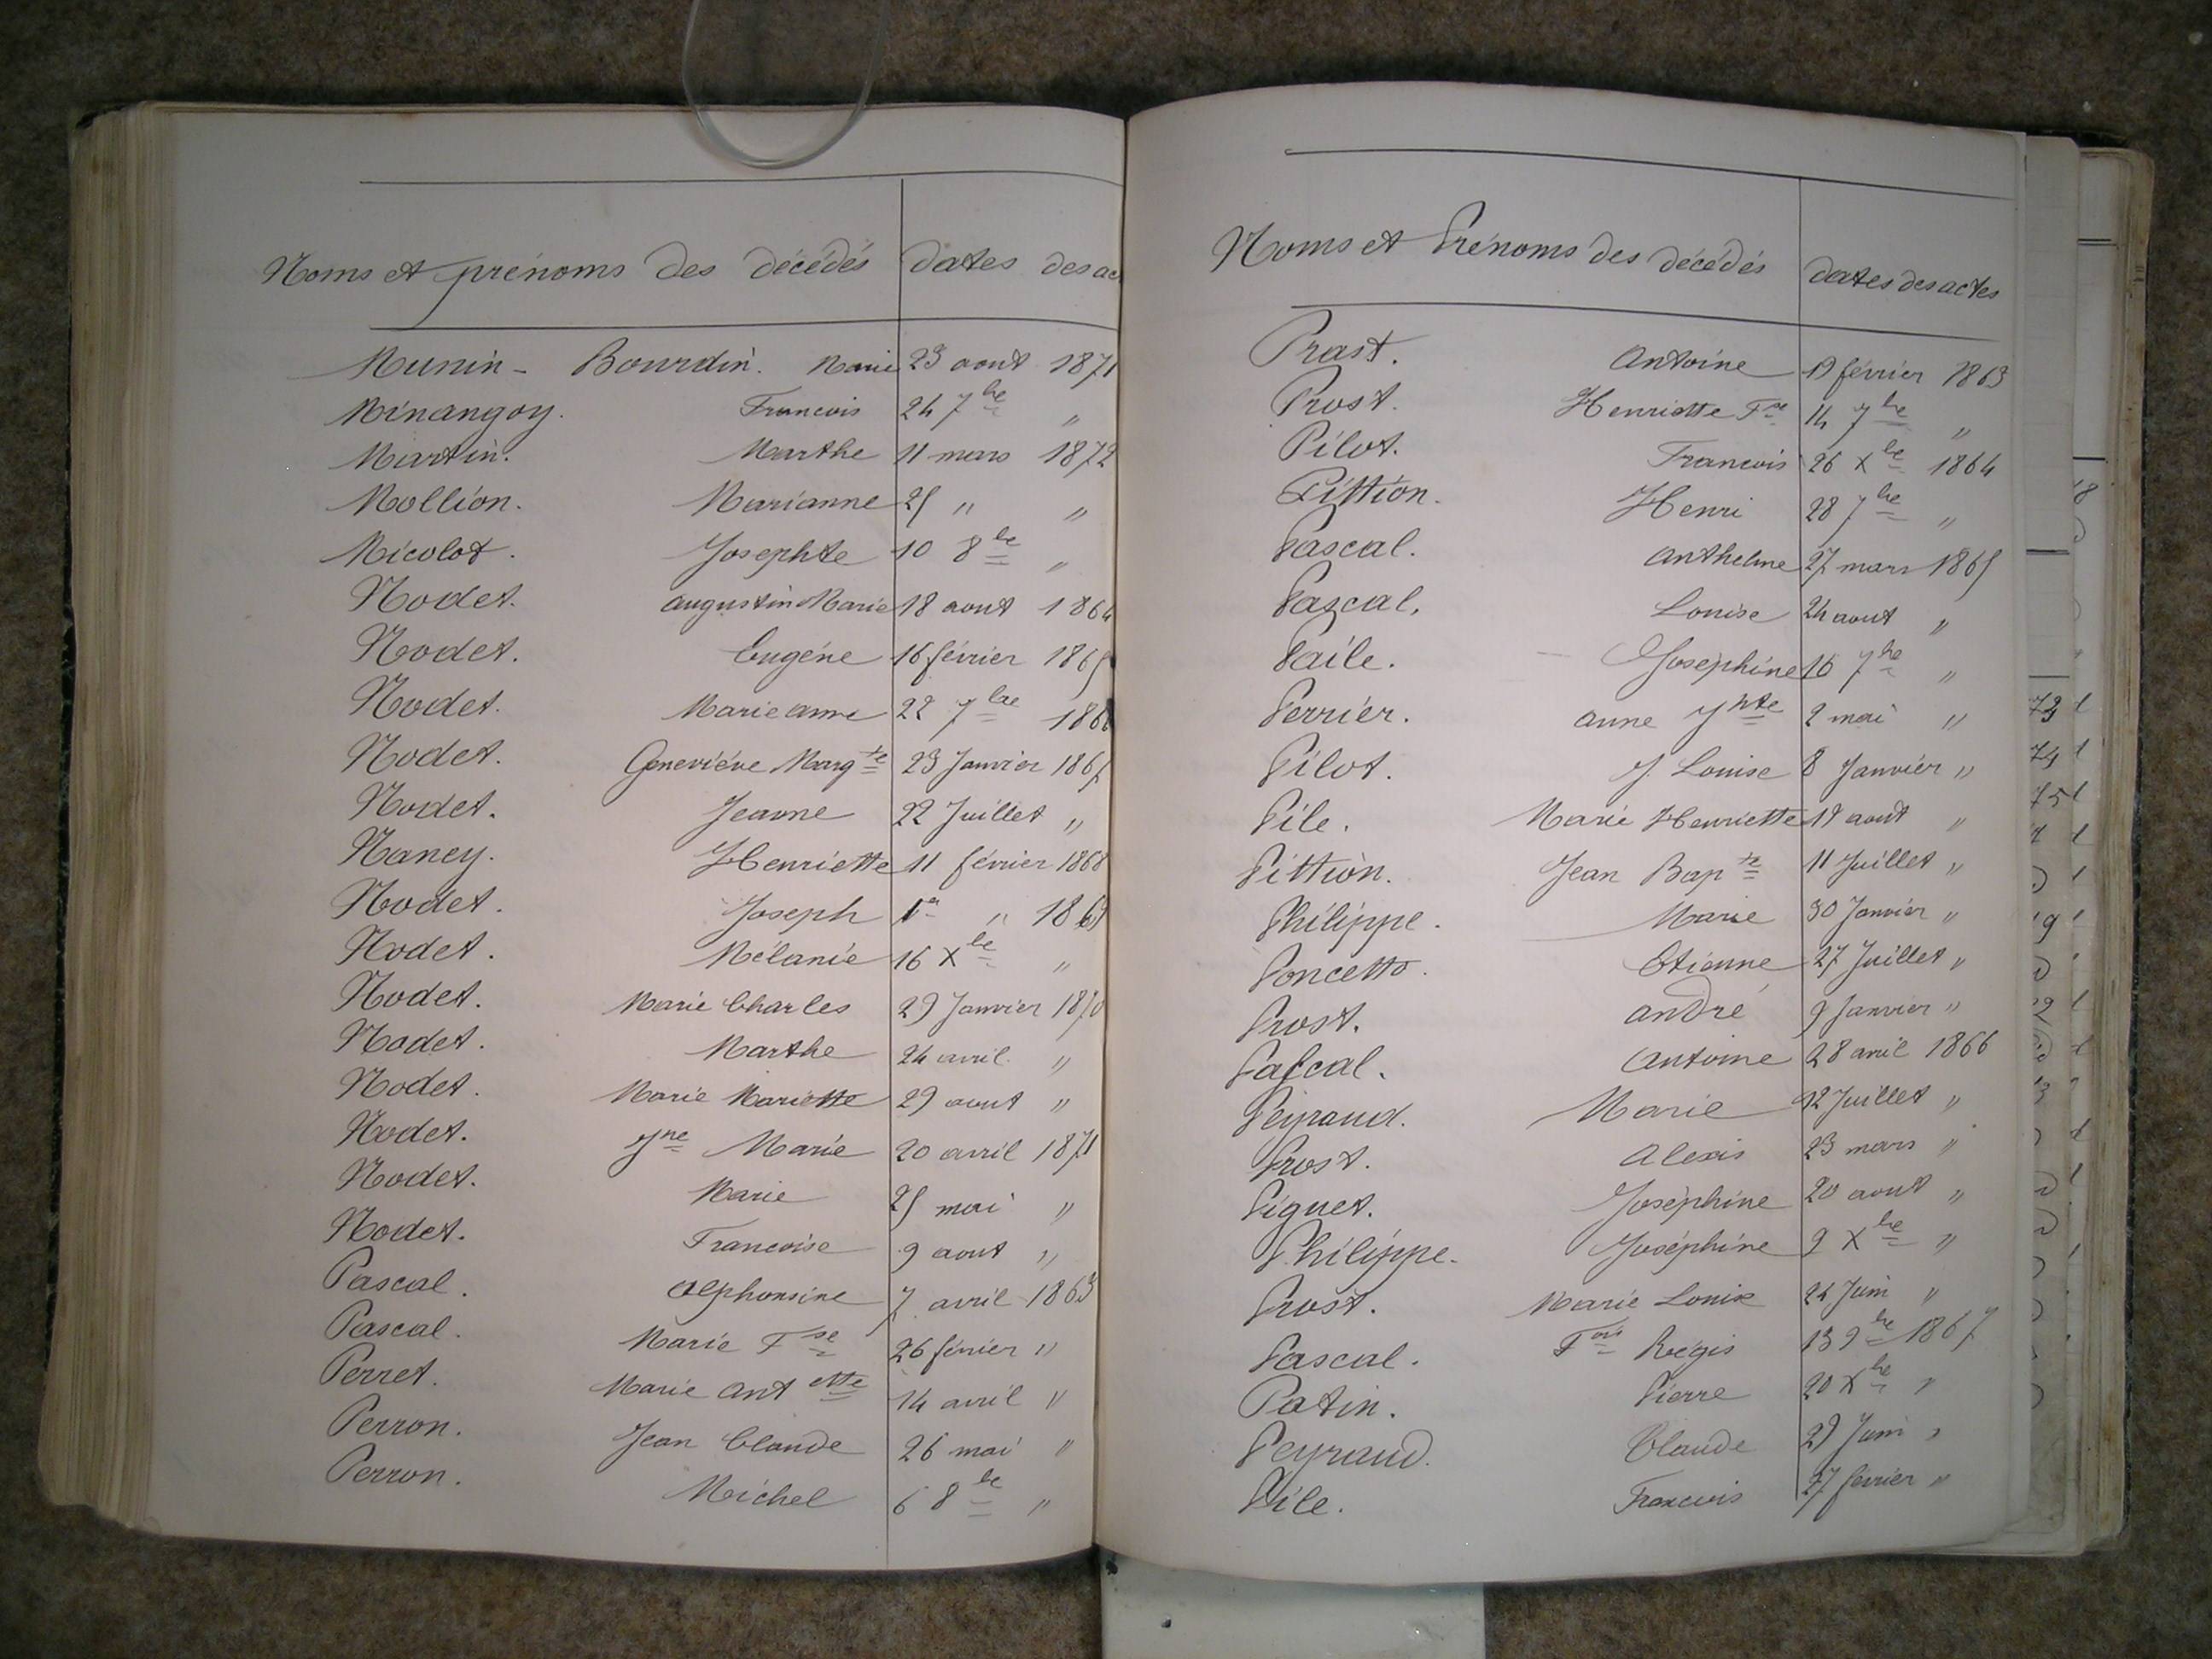 Noms et prénoms des décédés dates des ac
Munin - Bourdin. Marie 23 aout 1871
Minangoy. Francois 24 7bre "
Martin. Marthe 11 mars 1872
Mollion. Marianne 25 " "
Micolot. Josephte 10 8bre "
Nodet. Augustin Marie 18 aout 1864
Nodet. Eugéne 16 février 1865
Nodet. Marie anne 22 7bre 1866
Nodet. Geneviéve Margte 23 Janvier 1867
Nodet. Jeanne 22 Juillet "
Naney. Henriette 11 février 1868
Nodet. Joseph 1er " 1869
Nodet. Mélanie 16 Xbre "
Nodet. Marie Charles 29 Janvier 1870
Nodet. Marthe 24 avril "
Nodet. Marie Mariette 29 aout "
Nodet. Jne Marie 20 avril 1871
Nodet. Marie 25 mai "
Nodet. Francoise 9 aout "
Pascal. Alphonsine 7 avril 1863
Pascal. Marie Fse 26 février "
Perret. Marie Antette 14 avril "
Perron. Jean Claude 26 mai "
Perron. Michel 6 8bre "
Noms et Prénoms des décédés dates des actes
Prast. Antoine 19 février 1863
Prost. Henriette Fse 14 7bre "
Pilot. Francois 26 Xbre 1864
Pittion. Henri 28 7bre "
Pascal. Anthelme 27 mars 1865
Pascal. Louise 24 aout "
Paile. Joséphine 16 7bre "
Perrier. Anne Jphte 2 mai "
Pilot. J. Louise 8 Janvier "
Pile. Marie Henriette 19 aout "
Pittion. Jean Bapte 11 Juillet "
Philippe. Marie 30 Janvier "
Poncetto. Etienne 27 Juillet "
Prost. André 9 Janvier "
Pascal. Antoine 28 avril 1866
Peyraud. Marie 12 Juillet "
Prost. Alexis 23 mars "
Piguet. Joséphine 20 aout "
Philippe. Joséphine 9 Xbre "
Prost. Marie Louise 24 Juin "
Pascal. Fois Régis 13 9bre 1867
Patin. Pierre 20 Xbre "
Peyraud. Claude 29 Juin "
Pile. Francois 27 février "